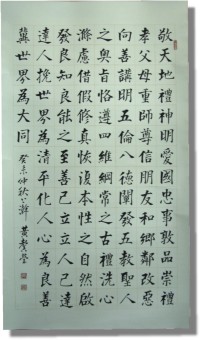 敬天地禮神明愛國忠事敦品崇禮
孝父母重師尊信朋友和鄉鄰改惡
向善講明五倫八德闡發五教聖人
之奧旨恪遵四維綱常之古禮洗心
滌慮借假修真恢復本性之自然啟
發良知良能之至善己立立人己達
達人挽世界為清平化人心為良善
冀世界為大同
癸未仲秋 黃